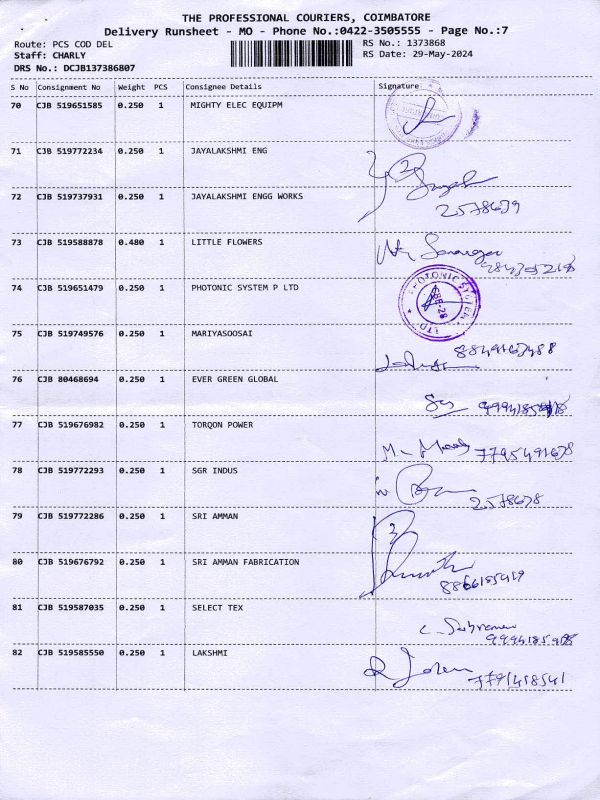 THE PROFESSIONAL COURIERS, COIMBATORE
Delivery Runsheet - MO - Phone No.:0422-3505555 - Page No.:7
Route: PCS COD DEL RS No.: 1373868
Staff: CHARLY RS Date: 29-May-2024
DRS No.: DCJB137386807
S No Consignment No Weight PCS Consignee Details Signature
70 CJB 519651585 0.250 1 MIGHTY ELEC EQUIPM
71 CJB 519772234 0.250 1 JAYALAKSHMI ENG
72 CJB 519737931 0.250 1 JAYALAKSHMI ENGG WORKS
2578679
73 CJB 519588878 0.480 1 LITTLE FLOWERS
74 CJB 519651479 0.250 1 PHOTONIC SYSTEM P LTD
PHOTONIC SYSTEM
LTD
75 CJB 519749576 0.250 1 MARIYASOOSAI
76 CJB 80468694 0.250 1 EVER GREEN GLOBAL
77 CJB 519676982 0.250 1 TORQON POWER
7795491678
78 CJB 519772293 0.250 1 SGR INDUS
2578678
79 CJB 519772286 0.250 1 SRI AMMAN
80 CJB 519676792 0.250 1 SRI AMMAN FABRICATION
81 CJB 519587035 0.250 1 SELECT TEX
82 CJB 519585550 0.250 1 LAKSHMI
7791418541